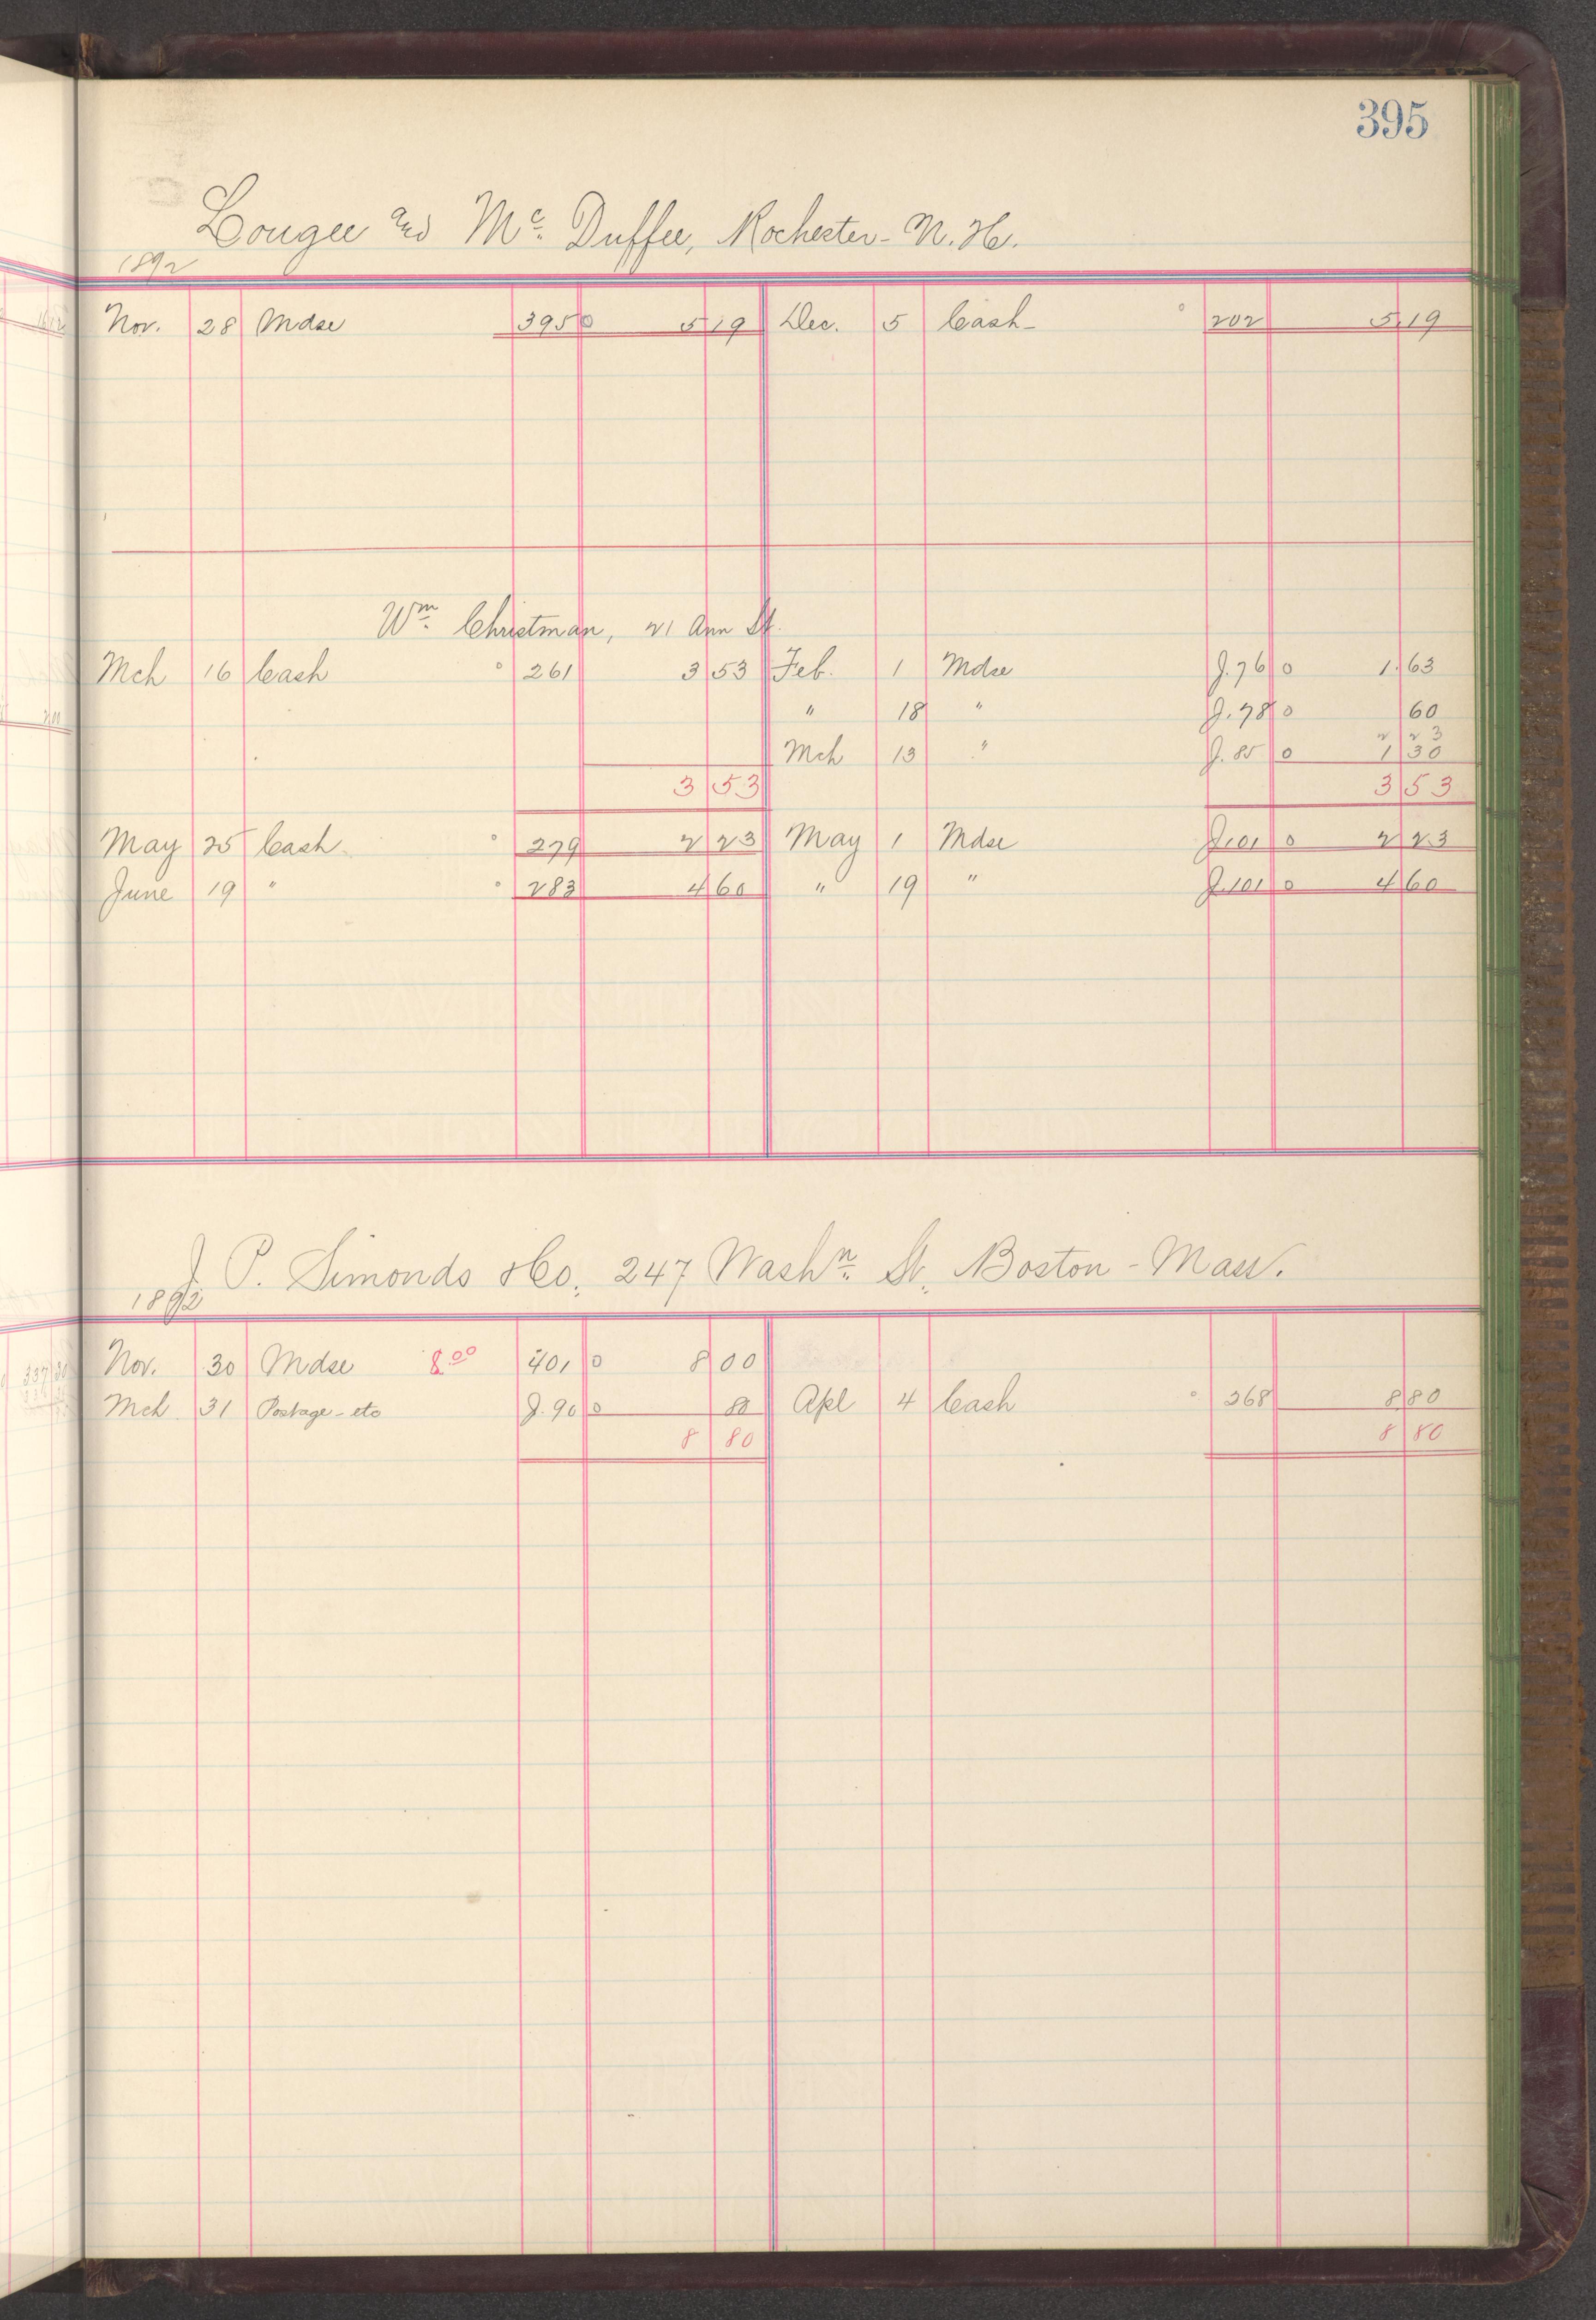 395
Lougee and Mc. Duffee, Rochester - N. H.
1892
Nov. 28 Mdse 395 0 5 19 Dec. 5 Cash - 202 5.19
Wm. Christman, 21 Ann St.
Mch 16 Cash 261 3 53 Feb. 1 Mdse J. 76 0 1.63
" 18 " J. 78 0 60
2 23
Mch 13 " J. 85 0 1 30
3 53 3 53
May 25 Cash 279 2 23 May 1 Mdse J. 101 0 2 23
June 19 " 283 4 60 " 19 " J. 101 0 4 60
J. P. Simonds & Co., 247 Washn. St., Boston - Mass.
1892
Nov. 30 Mdse 8.00 401 0 8 00
Mch 31 Postage - etc J. 90 0 80 Apl 4 Cash 268 8 80
8 80 8 80